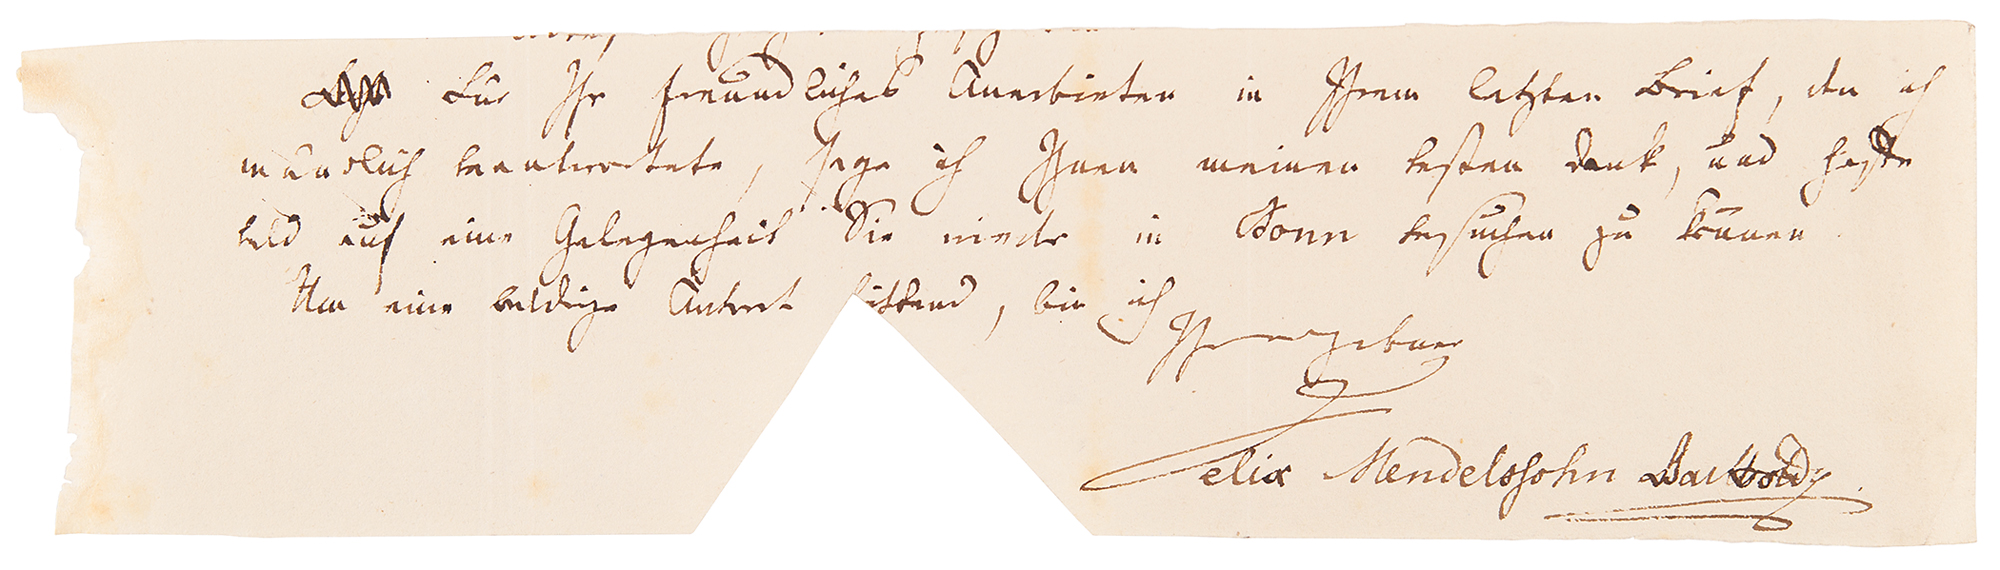 Für Ihr freundliches Anerbieten in Ihrem letzten Brief, den ich
mündlich beantwortete, sage ich Ihnen meinen besten Dank, und hoffe
bald auf eine Gelegenheit Sie wieder in Bonn besuchen zu können
Um eine baldige Antwort bittend, bin ich
Ihr ergebner
Felix Mendelssohn Bartholdy.